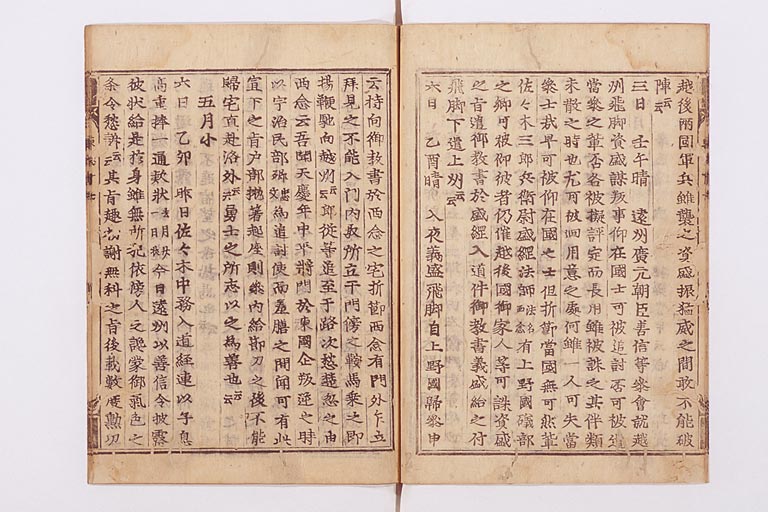 越後両国軍兵雖襲之資盛振猛威之間敢不能破
陣云云
三日 壬午晴 遠州廣元朝臣善信等參會就越
州飛脚資盛謀叛事仰在國士可被追討否可被遣
當參之輩否各被擬評定而長用雖被誅之其伴類
未散之時也尤可被廻用意之處何雖一人可失當
參士哉早可被仰在國之士但折節當國無可然輩
佐々木三郎兵衛尉盛綱法師有上野國礒部
之郷可被仰彼者仍催越後國御家人等可誅資盛
之旨遣御教書於盛綱入道件御教書義盛給之付
飛脚下遣上州云云
六日 乙酉晴 入夜義盛飛脚自上野國歸參申
云持向御教書於西念之宅折節西念有門外乍立
拜見之不能入門内取所立于門傍之鞍馬乘之即
揚鞭馳向越州云云郎従等追至于路次愁趨忽之由
西念云吾聞天慶年中平將門於東國企叛逆之時
以宇治民部卿為追討使而羞膳之間聞可有此
宣下之旨戸部抛著起座則參内給節刀之後不能
歸宅直赴洛外云云勇士之所志以之為善也云云
五月小
六日 乙卯霽 昨日佐々木中務入道經蓮以子息
高重捧一通款状今日遠州以善信令披露
彼状給是捨身雖無所犯依傍人之讒蒙御氣色之
条令愁訴云云其旨趣 謝無科之旨後載數度勲功